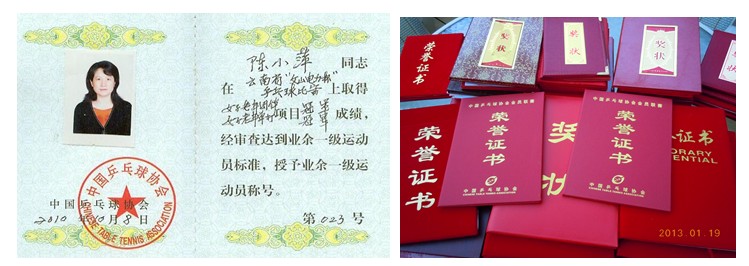 陈小萍 同志
在 云南省"文山电力杯" 上取得
乒乓球比赛
项目 冠军 成绩，
冠军
经审查达到业余一级运动
员标准，授予业余一级运
动员称号。
中国乒乓球协会
2010年10月8日
第023号
中国乒乓球协会
CHINESE TABLE TENNIS ASSOCIATION
荣誉证书
奖状
奖状
奖状
荣誉证书
奖状
中国乒乓球协会会员联赛
荣誉证书
中国乒乓球协会
CHINESE TABLE TENNIS ASSOCIATION
中国乒乓球协会会员联赛
荣誉证书
中国乒乓球协会
CHINESE TABLE TENNIS ASSOCIATION
证书
ORARY
ENTIAL
2013.01.19